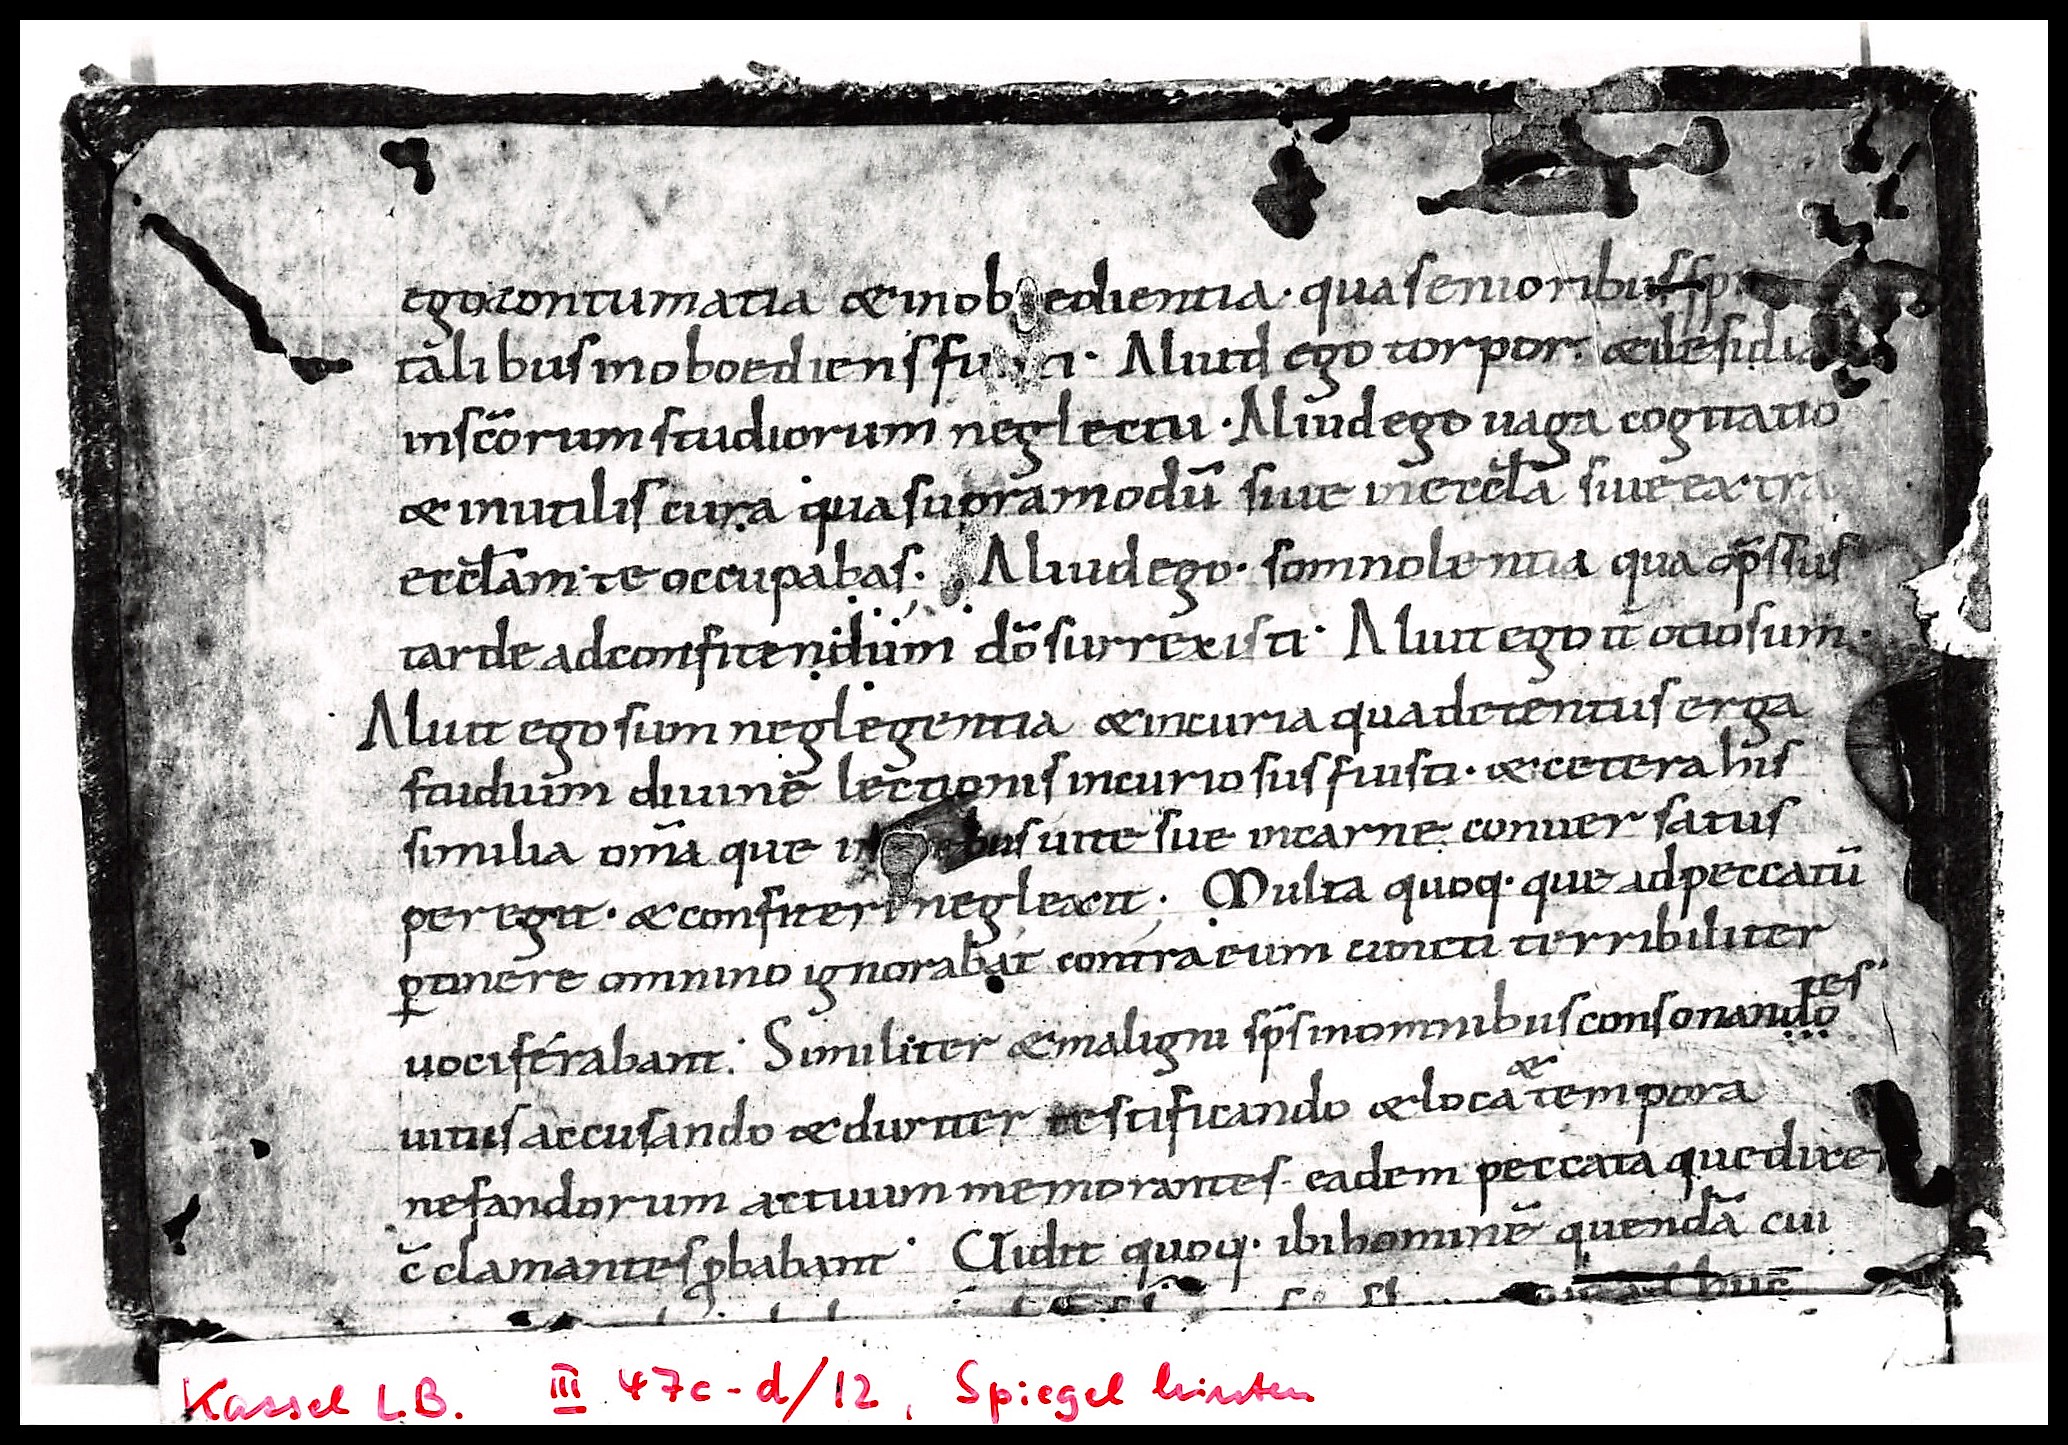 ego contumatia & inoboedientia · qua senioribus
talibus inoboediens · Aliud ego torpor · & desidia
in sc̄orum studiorum neglectu · Aliud ego uaga cogitatio
& inutilis cura qua supra modū siue in eccl̄a siue extra
eccl̄am te occupabas · Aliud ego · somnolentia qua op̄ssus
tarde ad confitendum dō surrexisti · Aliut ego it̄ otiosum ·
Aliut ego sum neglegentia & incuria qua detentus erga
studium diuine lectionis incuriosus fuisti · & cetera his
similia om̄a que uite sue in carne conuersatus
peregit · & confiteri neglexit · Multa quoq · que ad peccatū
ꝑtinere omnino ignorabat contra eum cuncti terribiliter
uociferabant · Similiter & maligni sp̄s in omnibus consonando tes
uitiis accusando & duriter testificando & loca & tempora
nefandorum actuum memorantes · eadem peccata que dixe
c̄clamantes ꝓbabant · Uidit quoq · ibi hominē quendā cui
Kassel L.B. III 47c-d/12, Spiegel hinten